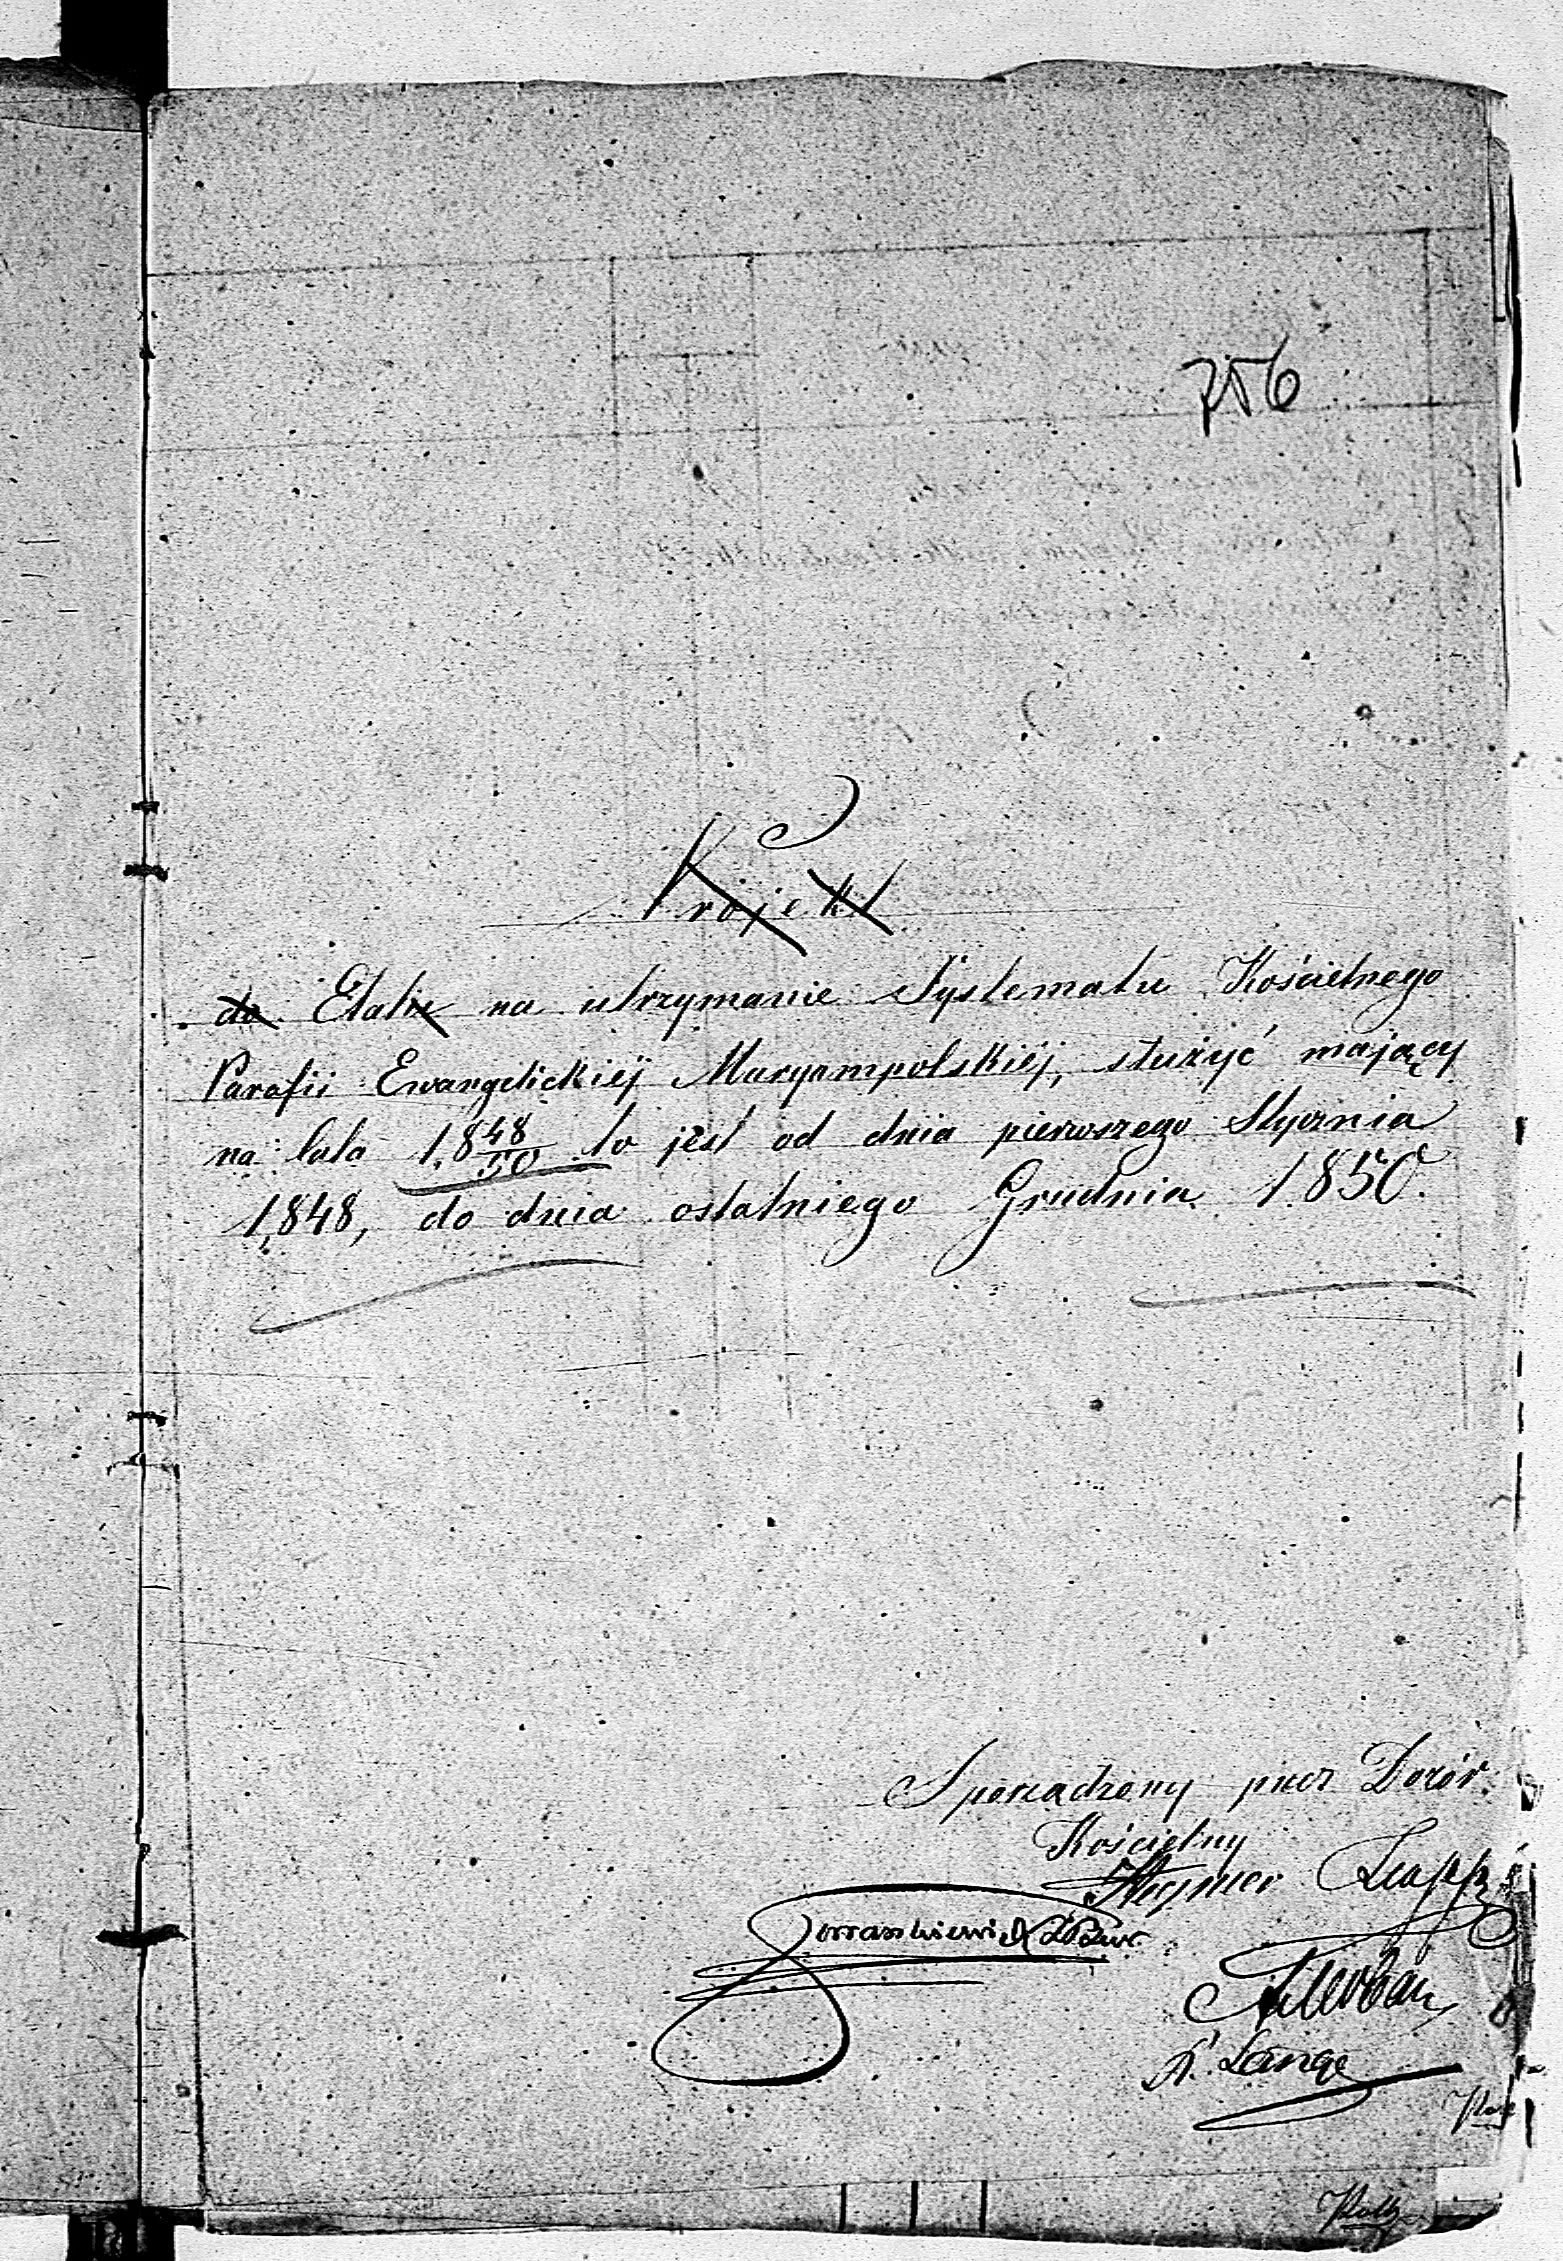 756
Projekt
do Etatu na utrzymanie Systematu Kościelnego
Parafii Ewangelickiéj Maryampolskiéj, służyć mający
na lata 18 48/50 to jest od dnia pierwszego Stycznia
1848, do dnia ostatniego Grudnia 1850.
Sporządzony przez Dozór
Kościelny
A. Lange